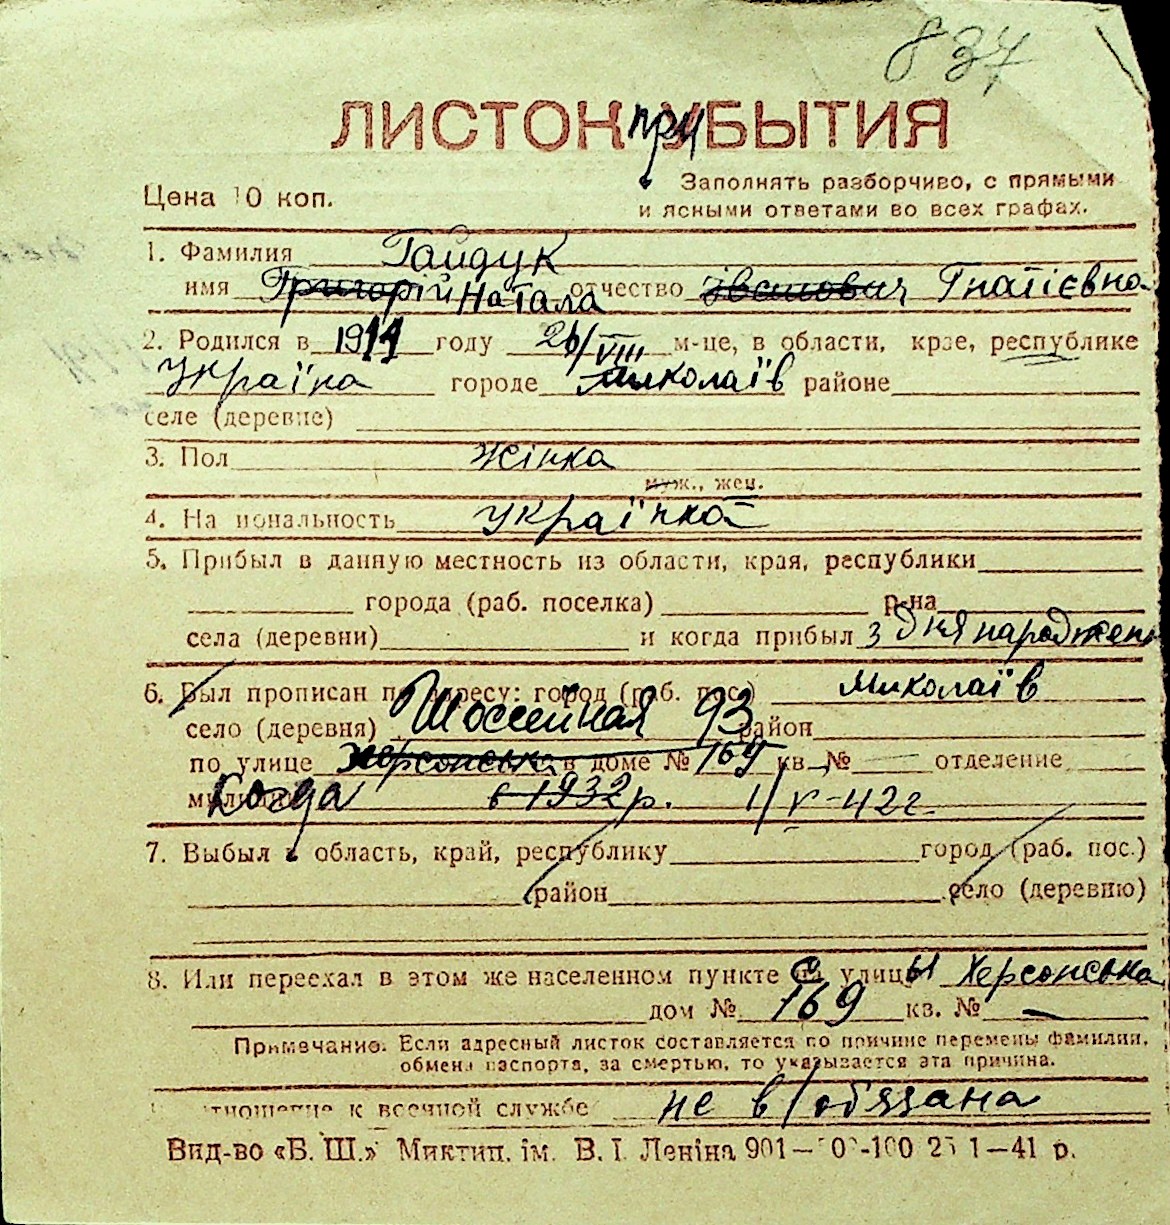 837
ЛИСТОК при УБЫТИЯ
Цена 10 коп.
Заполнять разборчиво, с прямыми
и ясными ответами во всех графах.
1. Фамилия Гайдук
имя Григорій Натала отчество Іванович Гнатієвна
2. Родился в 1911 году 26/VIII м-це, в области, крае, республике
Україна городе Миколаїв районе
селе (деревне)
3. Пол жінка
муж., жен.
4. Национальность українка
5. Прибыл в данную местность из области, края, республики
города (раб. поселка) р-на
села (деревни) и когда прибыл з дня народжен
6. Был прописан по адресу: город (раб. пос.) Миколаїв
село (деревня) Шоссейная 93 район
по улице Херсонська в доме № 169 кв. № — отделение
милиции Когда в 1932 р. 1/V-42 г.
7. Выбыл в область, край, республику город (раб. пос.)
район село (деревню)
8. Или переехал в этом же населенном пункте с улицы Херсонська
дом № 169 кв. № —
Примечание. Если адресный листок составляется по причине перемены фамилии,
обмена паспорта, за смертью, то указывается эта причина.
отношение к военной службе не в/обязана
Вид-во «Б. Ш.» Миктип. ім. В. І. Леніна 901— 1—41 р.